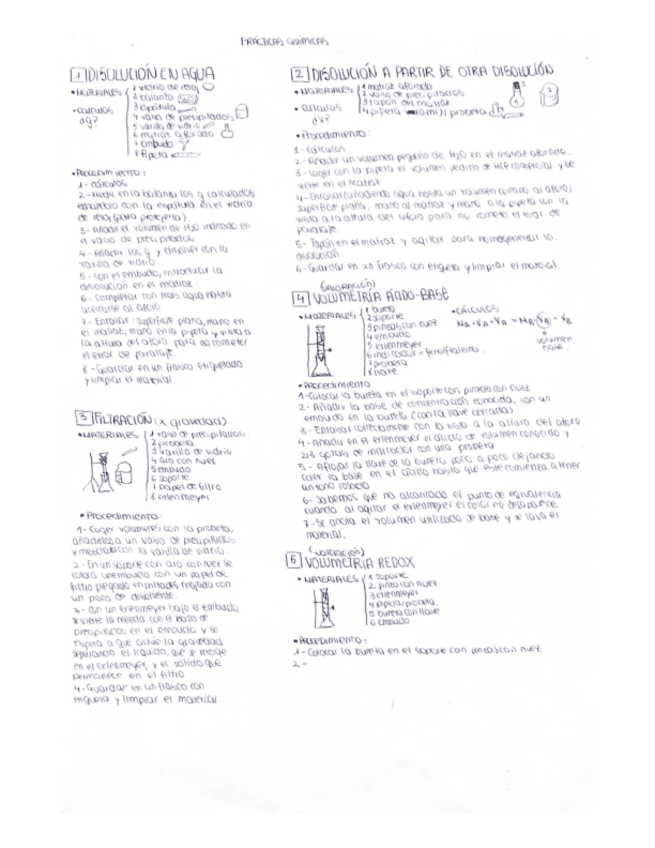 PRÁCTICAS QUÍMICAS
1 DISOLUCIÓN EN AGUA
• MATERIALES
1 vidrio de reloj
2 balanza
3 espátula
4 vaso de precipitados
5 varilla de vidrio
6 matraz aforado
7 Embudo
8 Pipeta
• cálculos
¿g?
• PROCEDIMIENTO:
1- cálculos
2- Medir en la balanza los g calculados
echándolo con la espátula en el vidrio
de reloj (para protegerla).
3- Añadir el volumen de H2O indicado en
el vaso de precipitados
4- Añadir los g y disolver con la
varilla de vidrio.
5- con el embudo, introducir la
disolución en el matraz.
6- completar con más agua hasta
al aforo
7- Enrasar: superficie plana, mano en
el matraz, mano en la pipeta y vista a
la altura del aforo para no cometer
el error de paralaje.
8- Guardar en un frasco etiquetado
y limpiar el material.
3 FILTRACIÓN (x gravedad)
• MATERIALES
1 vaso de precipitados
2 probeta
3 varilla de vidrio
4 aro con nuez
5 embudo
6 soporte
7 papel de filtro
8 erlenmeyer
• Procedimiento:
1- Coger volúmenes con la probeta,
añadirlos a un vaso de precipitados
y mezclarlos con la varilla de vidrio.
2- En un soporte con aro con nuez se
coloca un embudo con un papel de
filtro plegado mojado con
un poco de disolvente.
3- con un erlenmeyer bajo el embudo,
se vierte la mezcla con el vaso de
precipitados en el embudo y se
espera a que actúe la gravedad
separando el líquido, que se recoge
en el erlenmeyer, y el sólido que
permanece en el filtro
4- Guardar en un frasco con
etiqueta y limpiar el material.
2 DISOLUCIÓN A PARTIR DE OTRA DISOLUCIÓN
• MATERIALES
1 matraz aforado
2 vaso de precipitados
3 tapón del matraz
4 pipeta probeta
• cálculos
¿V?
• Procedimiento:
1- cálculos
2- Añadir un volumen pequeño de H2O en el matraz aforado.
3- Coger con la pipeta el volumen pedido de comercial y se
vierte en el matraz
4- Enrasar (añadiendo agua hasta un volumen cercano al aforo)
superficie plana, mano al matraz y mano a la pipeta con la
vista a la altura del aforo para no cometer el error de
paralaje.
5- Tapón en el matraz y agitar para homogeneizar la
disolución
6- Guardar en un frasco con etiqueta y limpiar el material.
(valoración)
4 VOLUMETRÍA ÁCIDO-BASE
• MATERIALES
1 bureta
2 soporte
3 pinzas con nuez
4 embudo
5 erlenmeyer
6 indicador = fenolftaleína.
7 probeta
8 llave
• CÁLCULOS
MA · VA · rA = MB · VB · rB
volumen
base.
• Procedimiento
1- Colocar la bureta en el soporte con pinzas con nuez
2- Añadir la base de concentración conocida, con un
embudo en la bureta (con la llave cerrada)
3- Enrasar correctamente con la vista a la altura del aforo
4- Añadir en el erlenmeyer el ácido de volumen conocido y
2/3 gotas de indicador con una probeta
5- Aflojar la llave de la bureta poco a poco dejando
caer la base en el ácido hasta que éste comienza a tener
un tono rosado
6- Sabemos que ha alcanzado el punto de equivalencia
cuando al agitar el erlenmeyer el color no desaparece.
7- Se anota el volumen utilizado de base y se lava el
material.
(valoración)
5 VOLUMETRIA REDOX
• MATERIALES
1 soporte
2 pinza con nuez
3 erlenmeyer
4 pipeta/probeta
5 bureta con llave
6 Embudo
• PROCEDIMIENTO:
1- Colocar la bureta en el soporte con pinzas con nuez
2-